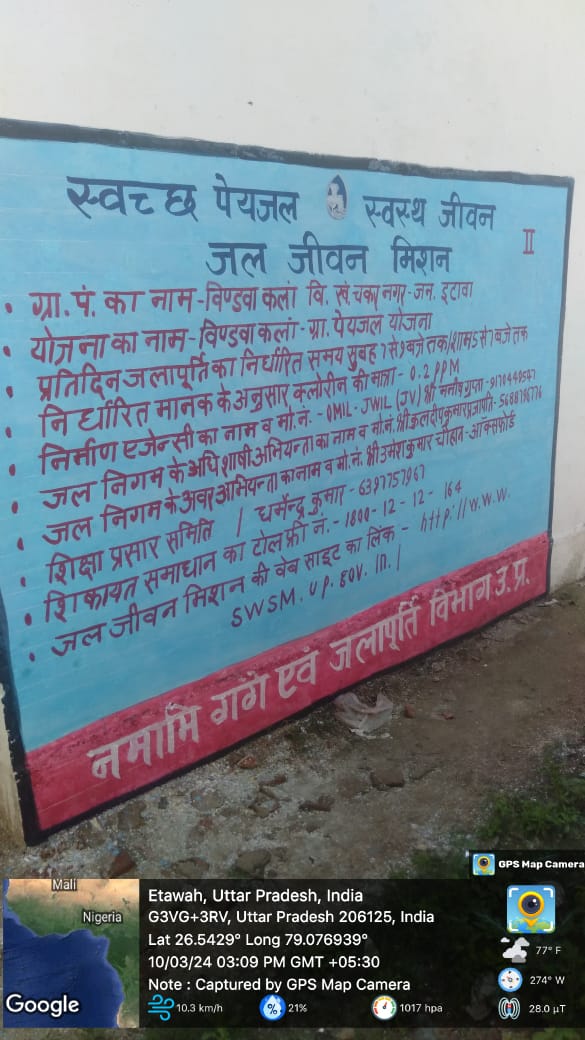 स्वच्छ पेयजल स्वस्थ जीवन
जल जीवन मिशन
II
• ग्रा. पं. का नाम - विण्डवा कलां वि. खं. चकरनगर - जन. इटावा
• योजना का नाम - विण्डवा कलां - ग्रा. पेयजल योजना
• प्रतिदिन जलापूर्ति का निर्धारित समय सुबह 7 से 9 बजे तक/शाम 5 से 7 बजे तक
• निर्धारित मानक के अनुसार क्लोरीन की मात्रा - 0.2 PPM
• निर्माण एजेन्सी का नाम व मो.नं. - OMIL-JWIL (JV) श्री मनीष गुप्ता - 9170449547
• जल निगम के अधिशाषी अभियन्ता का नाम व मो.नं. श्री कुलदीप कुमार प्रजापति -
• जल निगम के अवर अभियन्ता का नाम व मो.नं. श्री उमेश कुमार चौहान - ऑक्सफोर्ड
• शिक्षा प्रसार समिति / धर्मेन्द्र कुमार - 6397757967
• शिकायत समाधान का टोल फ्री नं. - 1800-12-12-164
• जल जीवन मिशन की वेब साइट का लिंक - http://w.w.w.
swsm.up.gov.in./
नमामि गगे एवं जलापूर्ति विभाग उ.प्र.
GPS Map Camera
Mali
Nigeria
Google
Etawah, Uttar Pradesh, India
G3VG+3RV, Uttar Pradesh 206125, India
Lat 26.5429° Long 79.076939°
10/03/24 03:09 PM GMT +05:30
Note : Captured by GPS Map Camera
77° F
274° W
10.3 km/h
21%
1017 hpa
28.0 µT